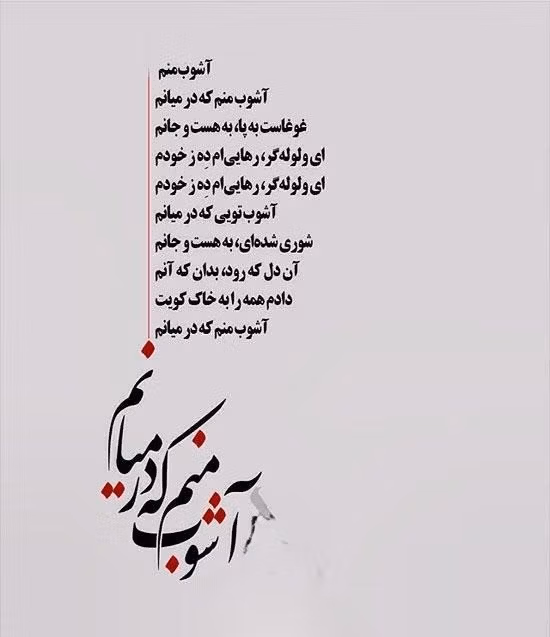 آشوب منم
آشوب منم که در میانم
غوغاست به پا، به هست و جانم
ای ولوله‌گر، رهایی‌ام دِه ز خودم
ای ولوله‌گر، رهایی‌ام دِه ز خودم
آشوب تویی که در میانم
شوری شده‌ای، به هست و جانم
آن دل که رود، بدان که آنم
دادم همه را به خاک کویت
آشوب منم که در میانم
آشوب منم که در میانم